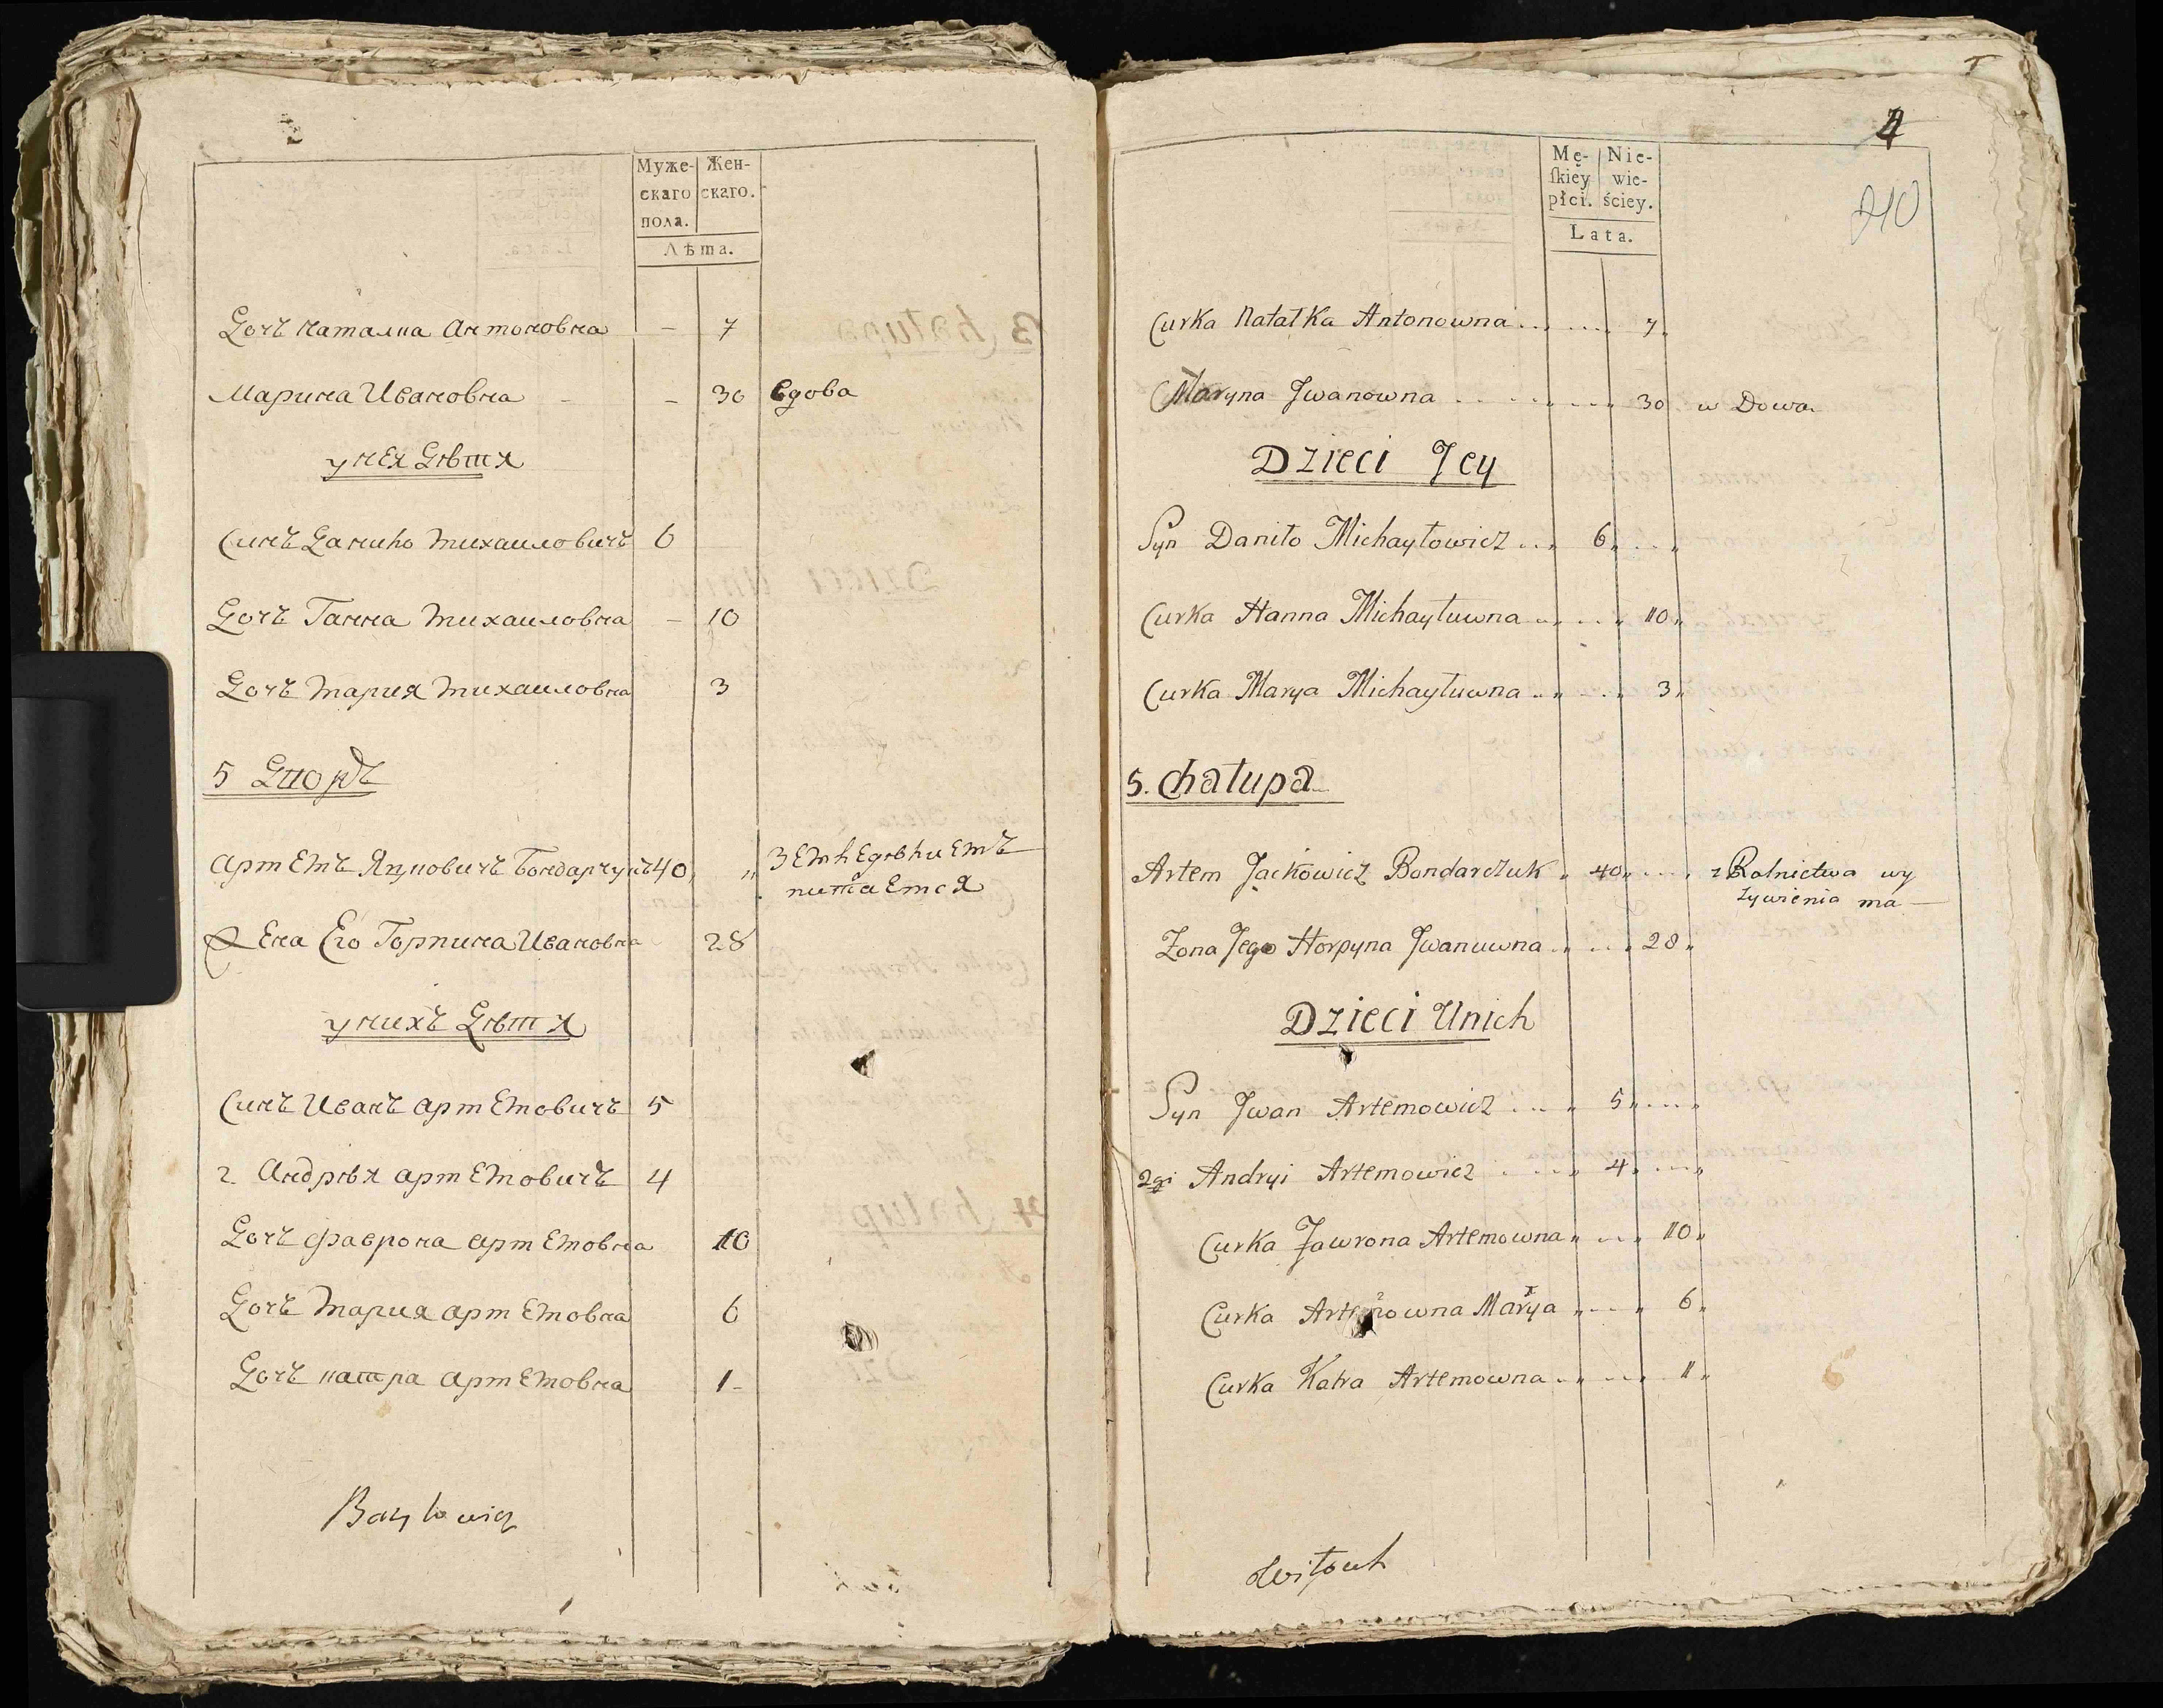 Муже- Жен-
скаго скаго.
пола.
Лѣта.
Дочъ Наталка Антоновна — 7
Марина Ивановна — 30 Вдова
у нея Дѣтя
Синъ Данило Михаиловичъ 6
Дочъ Ганна Михаиловна — 10
Дочъ Мария Михаиловна 3
5 Дворъ
Артемъ Яцковичъ Бондарчукъ 40 „ Землѣделиемъ
питаемся
Жена Его Горпина Ивановна 28
у нихъ Дѣтя
Синъ Иванъ Артемовичъ 5
2. Андрѣя Артемовичъ 4
Дочъ Фаврона Артемовна 10
Дочъ Мария Артемовна 6
Дочъ Катра Артемовна 1
4
210
Mę- Nie-
ſkiey wie-
płci. ściey.
Lata.
Curka Natałka Antonowna 7
Maryna Jwanowna 30 w Dowa
Dzieci Jey
Syn Daniło Michayłowicz 6
Curka Hanna Michayłuwna 10
Curka Marya Michayłuwna 3
5. Chałupa
Artem Jackowicz Bondarczuk 40 z Rolnictwa wy
żywienia ma
Żona Jego Horpyna Jwanuwna 28
Dzieci Unich
Syn Jwan Artemowicz 5
2gi Andryi Artemowicz 4
Curka Jawrona Artemowna 10
Curka Artemowna Marya 6
Curka Katra Artemowna 1